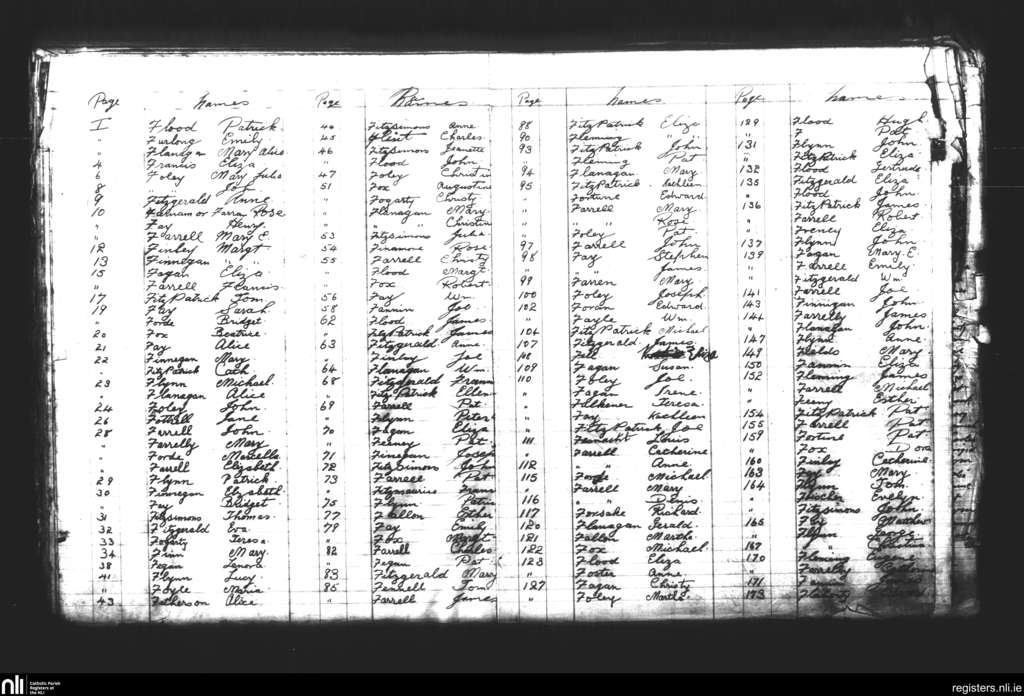 Page Names Page Names Page Names Page Names
I Flood Patrick 44 FitzSimons Anne 88 FitzPatrick Eliza 129 Flood Hugh
" Furlong Emily 45 Charles 90 Fleming John " F Pat
" Flanagan Mary Alice 46 FitzSimons Jeanette 93 FitzPatrick John 131 Flynn John
4 Francis Eliza " Flood John " Fleming Pat " FitzPatrick Eliza
6 Foley Mary Julia 47 Foley Christin 94 Flanagan Mary 132 Flood Gertrude
8 " Jos 51 Fox Augustine 95 FitzPatrick Kathleen 135 Fitzgerald Eliza
9 Fitzgerald Anne " Fogarty Christy " Fortune Edward " Flood John
10 Farnam or Farran Rose " Flanagan Mary " Farrell Mary 136 FitzPatrick James
" Fay Henry " " Christin " " Rose " Farrell Robert
" Farrell Mary E. 53 FitzSimons Julia " Foley Pat " Feeney Eliza
12 Finlay Margt 54 Finamore Rose 97 Farrell John 137 Flynn John
13 Finnegan " " 55 Farrell Christy 98 Fay Stephen 139 Fagan Mary E.
15 Fagan Eliza " Flood Margt " " James " Farrell Emily
" Farrell Francis " Fox Robert 99 Farren Mary " Fitzgerald Wm
17 FitzPatrick Tom 56 Fay Wm 100 Foley Joseph 141 Farrell Joe
19 Fay Sarah 58 Fannin Joe 102 Foran Edward 143 Finnigan John
" Forde Bridget 62 Flood James " Fayle Wm 144 Farrelly James
20 Fox Beatrice " FitzPatrick James 104 FitzPatrick Michael " Flanagan John
21 Fay Alice 63 Fitzgerald Anne 107 Fitzgerald James 147 Flynn Anne
22 Finnegan Mary " Finlay Joe 108 Fell Eliza 149 Mary
" FitzPatrick Cath 64 Flanagan Wm 109 Fagan Susan 150 Fannin Eliza
23 Flynn Michael 68 Fitzgerald 110 Foley Joe 152 Fleming James
" Flanagan Alice " FitzPatrick Ellen " Fagan Irene " Farrell Michael
24 Foley John 69 Farrell Pat " Falkener Teresa " Feeny Esther
26 Fottrell Jane " Flynn Peter " Fay Kathleen 154 FitzPatrick Pat
28 Farrell John 70 Fagan Eliza " FitzPatrick Joe 155 Farrell Pat
" Farrelly Mary " Feeney Pat 111 Louis 159 Fortune Pat
" Forde Marcella 71 Finegan Joseph " Farrell Catherine " Fox Dora
" Farrell Elizabeth 72 FitzSimons John 112 " Anne 160 Finlay Catherine
29 Flynn Patrick 73 Farrell Pat 115 Forde Michael 163 Fay Mary
30 Finnegan Elizabeth " Fitzmaurice " Farrell Mary 164 Flynn Tom
" Fay Bridget 75 Flynn Patk 116 " Denis " Evelyn
31 FitzSimons Thomas 77 Fallon Ether 117 Forsake Richard " FitzSimons John
32 Fitzgerald Eva 79 Fay Emily 120 Flanagan Gerald 165 Fay Matthew
33 Fogarty Teresa " Fox Margt 121 Fallon Martha " Flynn
34 Finn Mary 82 Farrell Charles 122 Fox Michael 167 "
38 Fegan Lenora " Fegan Pat 123 Flood Eliza 170 Fleming
41 Flynn Lucy 83 Fitzgerald Mary " Foster Anne " Farrelly
" Foyle Maria 85 Fennell Tom 127 Fagan Christy 171 James
43 Fatherson Alice " Farrell James " Foley Martha 173
nli Catholic Parish Registers at the NLI
registers.nli.ie